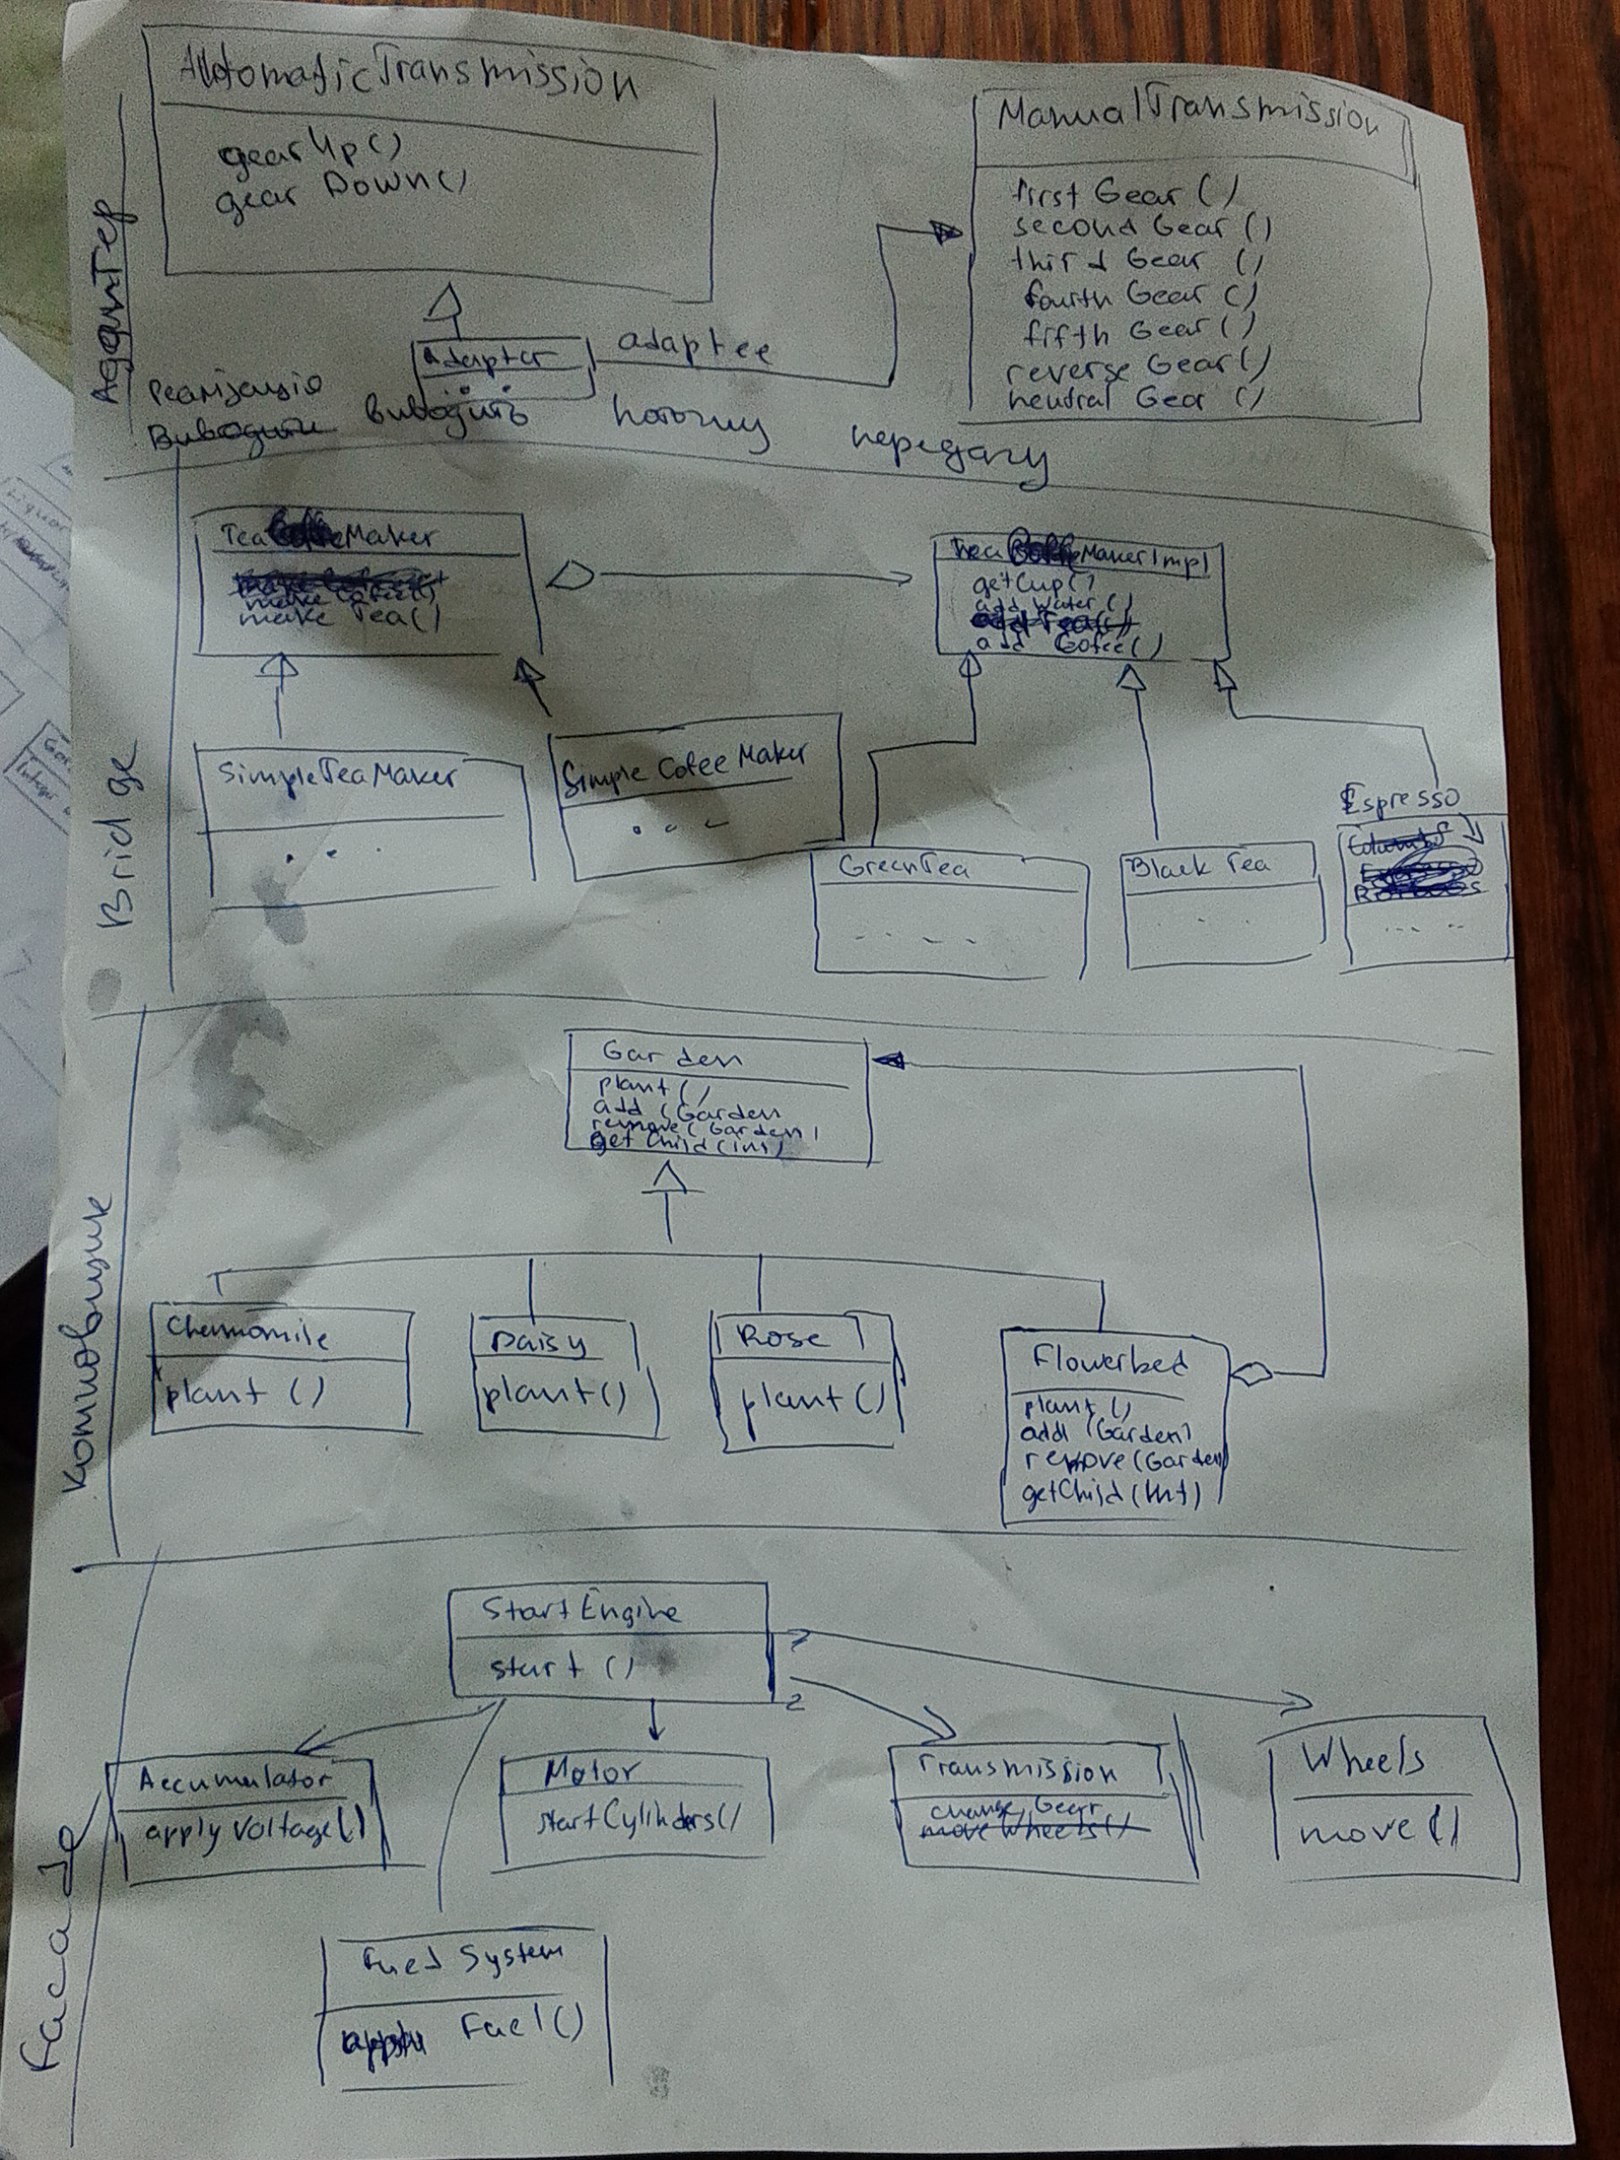 Адаптер
AutomaticTransmission
gearUp()
gear Down()
ManualTransmission
first Gear ()
second Gear ()
third Gear ()
fourth Gear ()
fifth Gear ()
reverse Gear()
neutral Gear ()
adapter
...
adaptee
Реалізацію
Виводити виводить поточну передачу
Bridge
Tea Maker
make Cofee()
make Tea()
MakerImpl
getCup()
add Water()
add Tea()
add Cofee()
SimpleTeaMaker
...
Simple Cofee Maker
...
GreenTea
....
Black Tea
...
Espresso
Комповщик
Garden
plant()
add (Garden
remove(Garden)
get Child(int)
Chammomile
plant ()
Daisy
plant()
Rose
plant()
Flowerbed
plant()
add (Garden)
remove(Garden
getChild(Int)
Facade
StartEngine
start ()
Accumulator
apply Voltage()
Motor
startCylinders()
Transmission
change Gear
move Wheels()
Wheels
move()
Fuel System
apply Fuel()